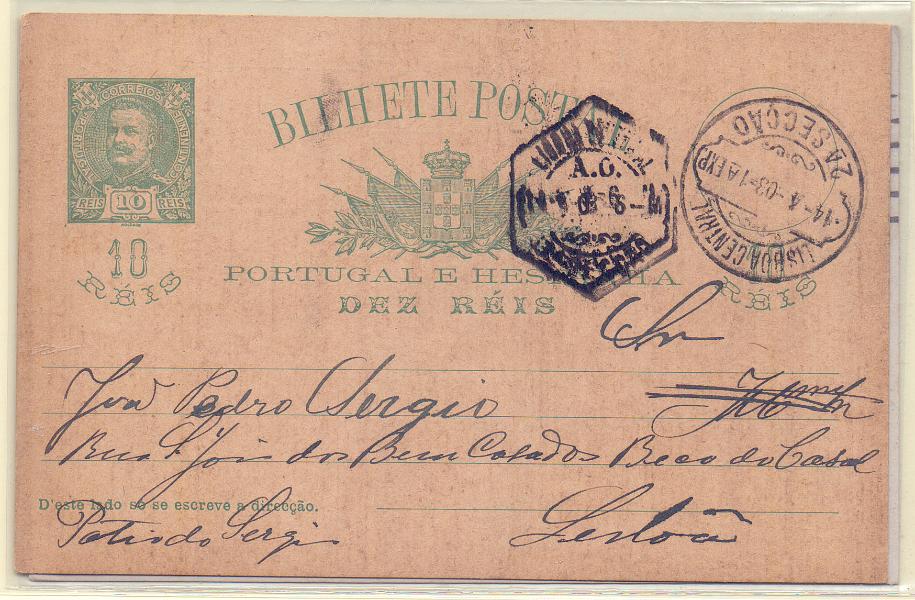 CORREIOS
PORTUGAL
CONTINENTE
REIS 10 REIS
10
RÉIS
BILHETE POSTAL
PORTUGAL E HESPANHA
DEZ RÉIS
RÉIS
A.C.
LISBOA CENTRAL
14-4-03-1A EXP
2A SECÇÃO
Snr
João Pedro Sergio
Rua S. João dos Bem Casados Beco do Casal
D'este lado só se escreve a direcção.
Pateo do Sergio
Lesboã